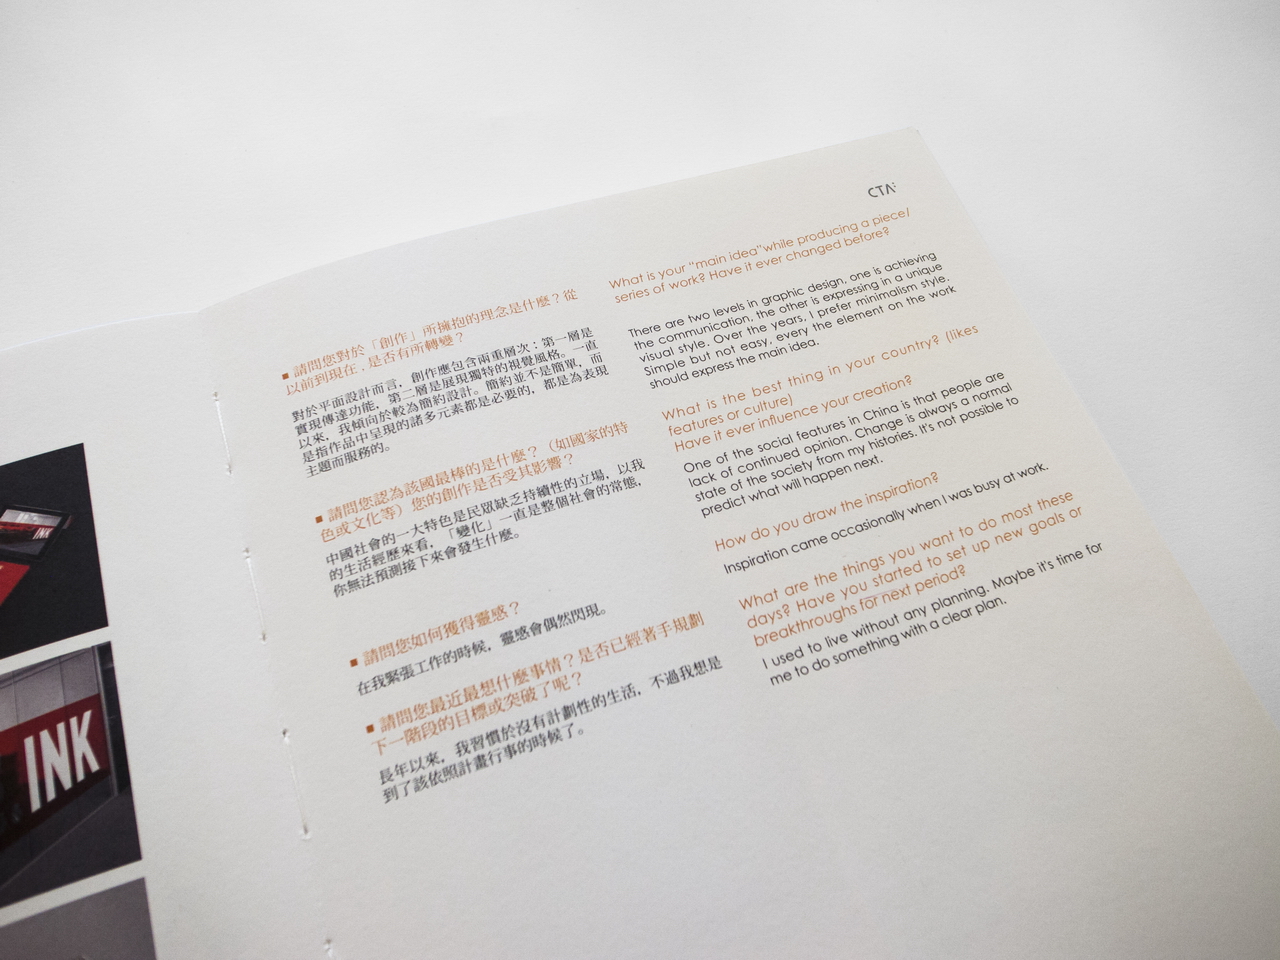 CTA
■ 請問您對於「創作」所擁抱的理念是什麼？從
以前到現在，是否有所轉變？
對於平面設計而言，創作應包含兩重層次：第一層是
實現傳達功能，第二層是展現獨特的視覺風格。一直
以來，我傾向於較為簡約設計。簡約並不是簡單，而
是指作品中呈現的諸多元素都是必要的，都是為表現
主題而服務的。
■ 請問您認為該國最棒的是什麼？（如國家的特
色或文化等）您的創作是否受其影響？
中國社會的一大特色是民眾缺乏持續性的立場，以我
的生活經歷來看，「變化」一直是整個社會的常態，
你無法預測接下來會發生什麼。
■ 請問您如何獲得靈感？
在我緊張工作的時候，靈感會偶然閃現。
■ 請問您最近最想什麼事情？是否已經著手規劃
下一階段的目標或突破了呢？
長年以來，我習慣於沒有計劃性的生活，不過我想是
到了該依照計畫行事的時候了。
What is your "main idea"while producing a piece/
series of work? Have it ever changed before?
There are two levels in graphic design, one is achieving
the communication, the other is expressing in a unique
visual style. Over the years, I prefer minimalism style.
Simple but not easy, every the element on the work
should express the main idea.
What is the best thing in your country? (likes
features or culture)
Have it ever influence your creation?
One of the social features in China is that people are
lack of continued opinion. Change is always a normal
state of the society from my histories. It's not possible to
predict what will happen next.
How do you draw the inspiration?
Inspiration came occasionally when I was busy at work.
What are the things you want to do most these
days? Have you started to set up new goals or
breakthroughs for next period?
I used to live without any planning. Maybe it's time for
me to do something with a clear plan.
INK
INK